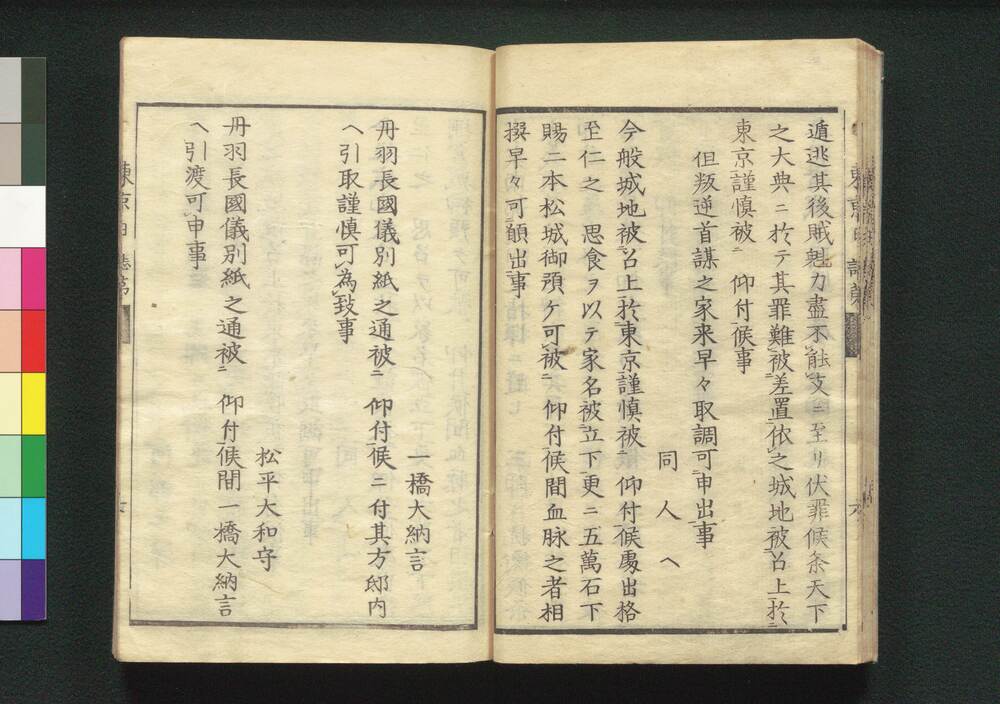 遁逃其後賊魁力盡不能支ニ至リ伏罪候条天下
之大典ニ於テ其罪難被差置依之城地被召上於
東京謹慎被 仰付候事
但叛逆首謀之家来早々取調可申出事
同人へ
今般城地被召上於東京謹慎被 仰付候處出格
至仁之 思食ヲ以テ家名被立下更ニ五萬石下
賜二本松城御預ケ可被 仰付候間血脉之者相
撰早々可願出事
一橋大納言
丹羽長國儀別紙之通被 仰付候ニ付其方邸内
へ引取謹慎可為致事
松平大和守
丹羽長國儀別紙之通被 仰付候間一橋大納言
へ引渡可申事
東京日誌第